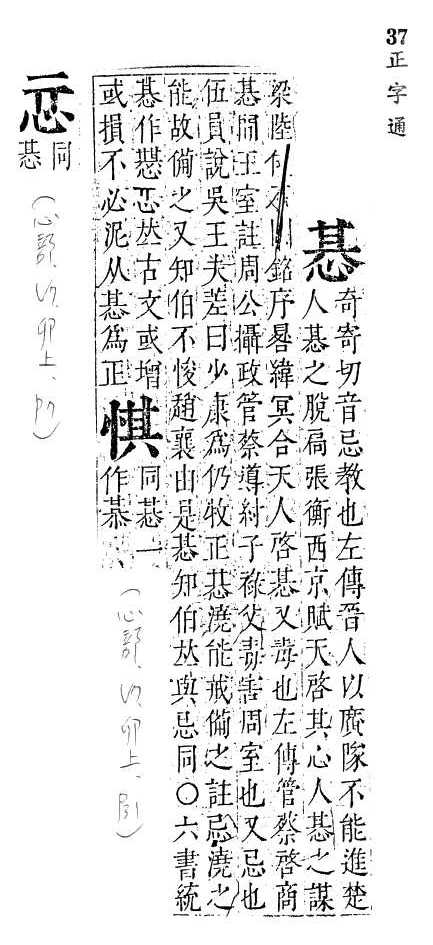 37 正字通
惎
奇寄切音忌教也左傳晉人以廣隊不能進楚
人惎之脫扃張衡西京賦天啓其心人惎之謀
梁陸 銘序晷緯冥合天人啓惎又毒也左傳管蔡啓商
惎間王室註周公攝政管蔡導紂子祿父毒害周室也又忌也
伍員說吳王夫差曰少康爲仍牧正惎澆能戒備之註忌澆之
能故備之又知伯不悛趙襄由是惎知伯𠀤與忌同〇六書統
惎作 𠀤古文或增
或損不必泥从惎爲正
同惎一
作
(心部、卯上、)
同
惎
(心部、卯上、)